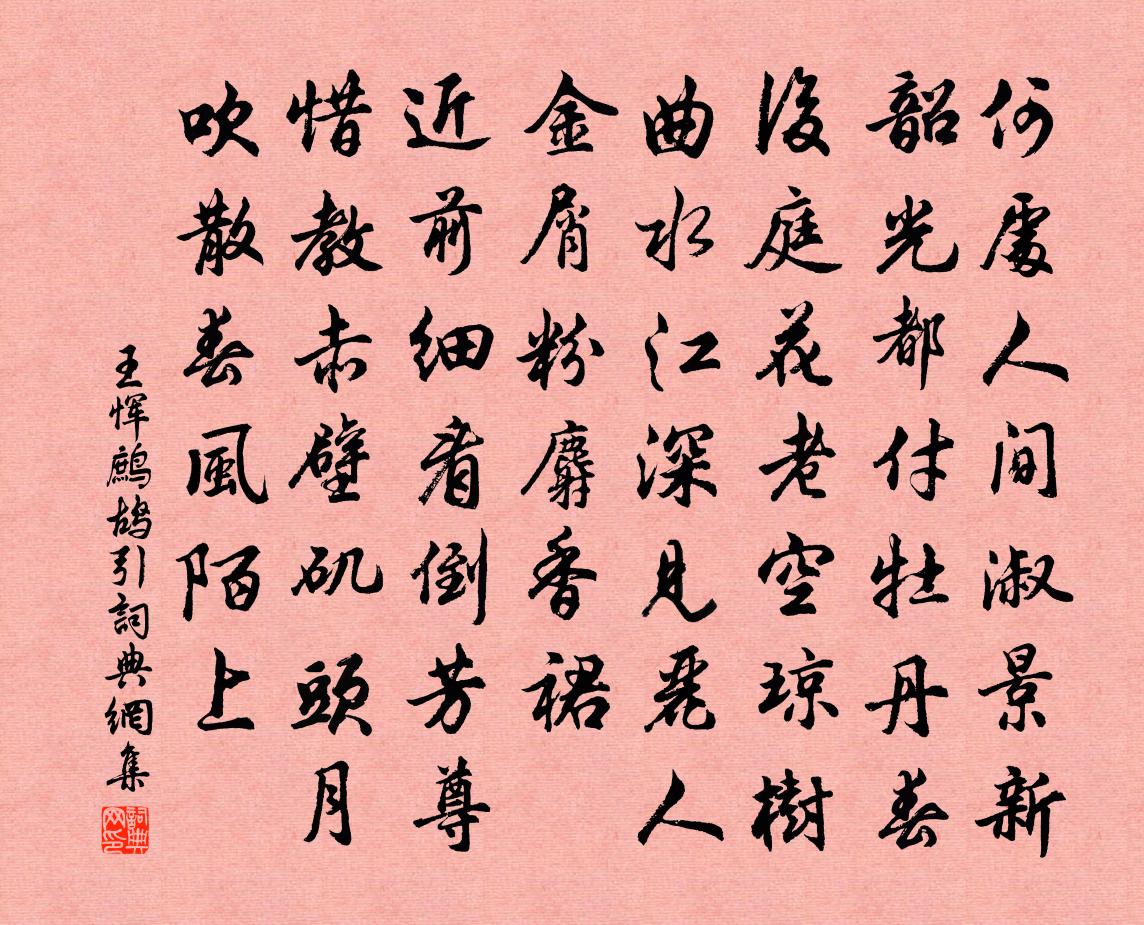 何處人間淑景新
韶光都付牡丹春
後庭花老空琼樹
曲水江深見麗人
金屑粉麝香裙
近前細看倒芳尊
惜教赤壁矶頭月
吹散春風陌上
王惲鷓鴣引詞典網集
詞典网印